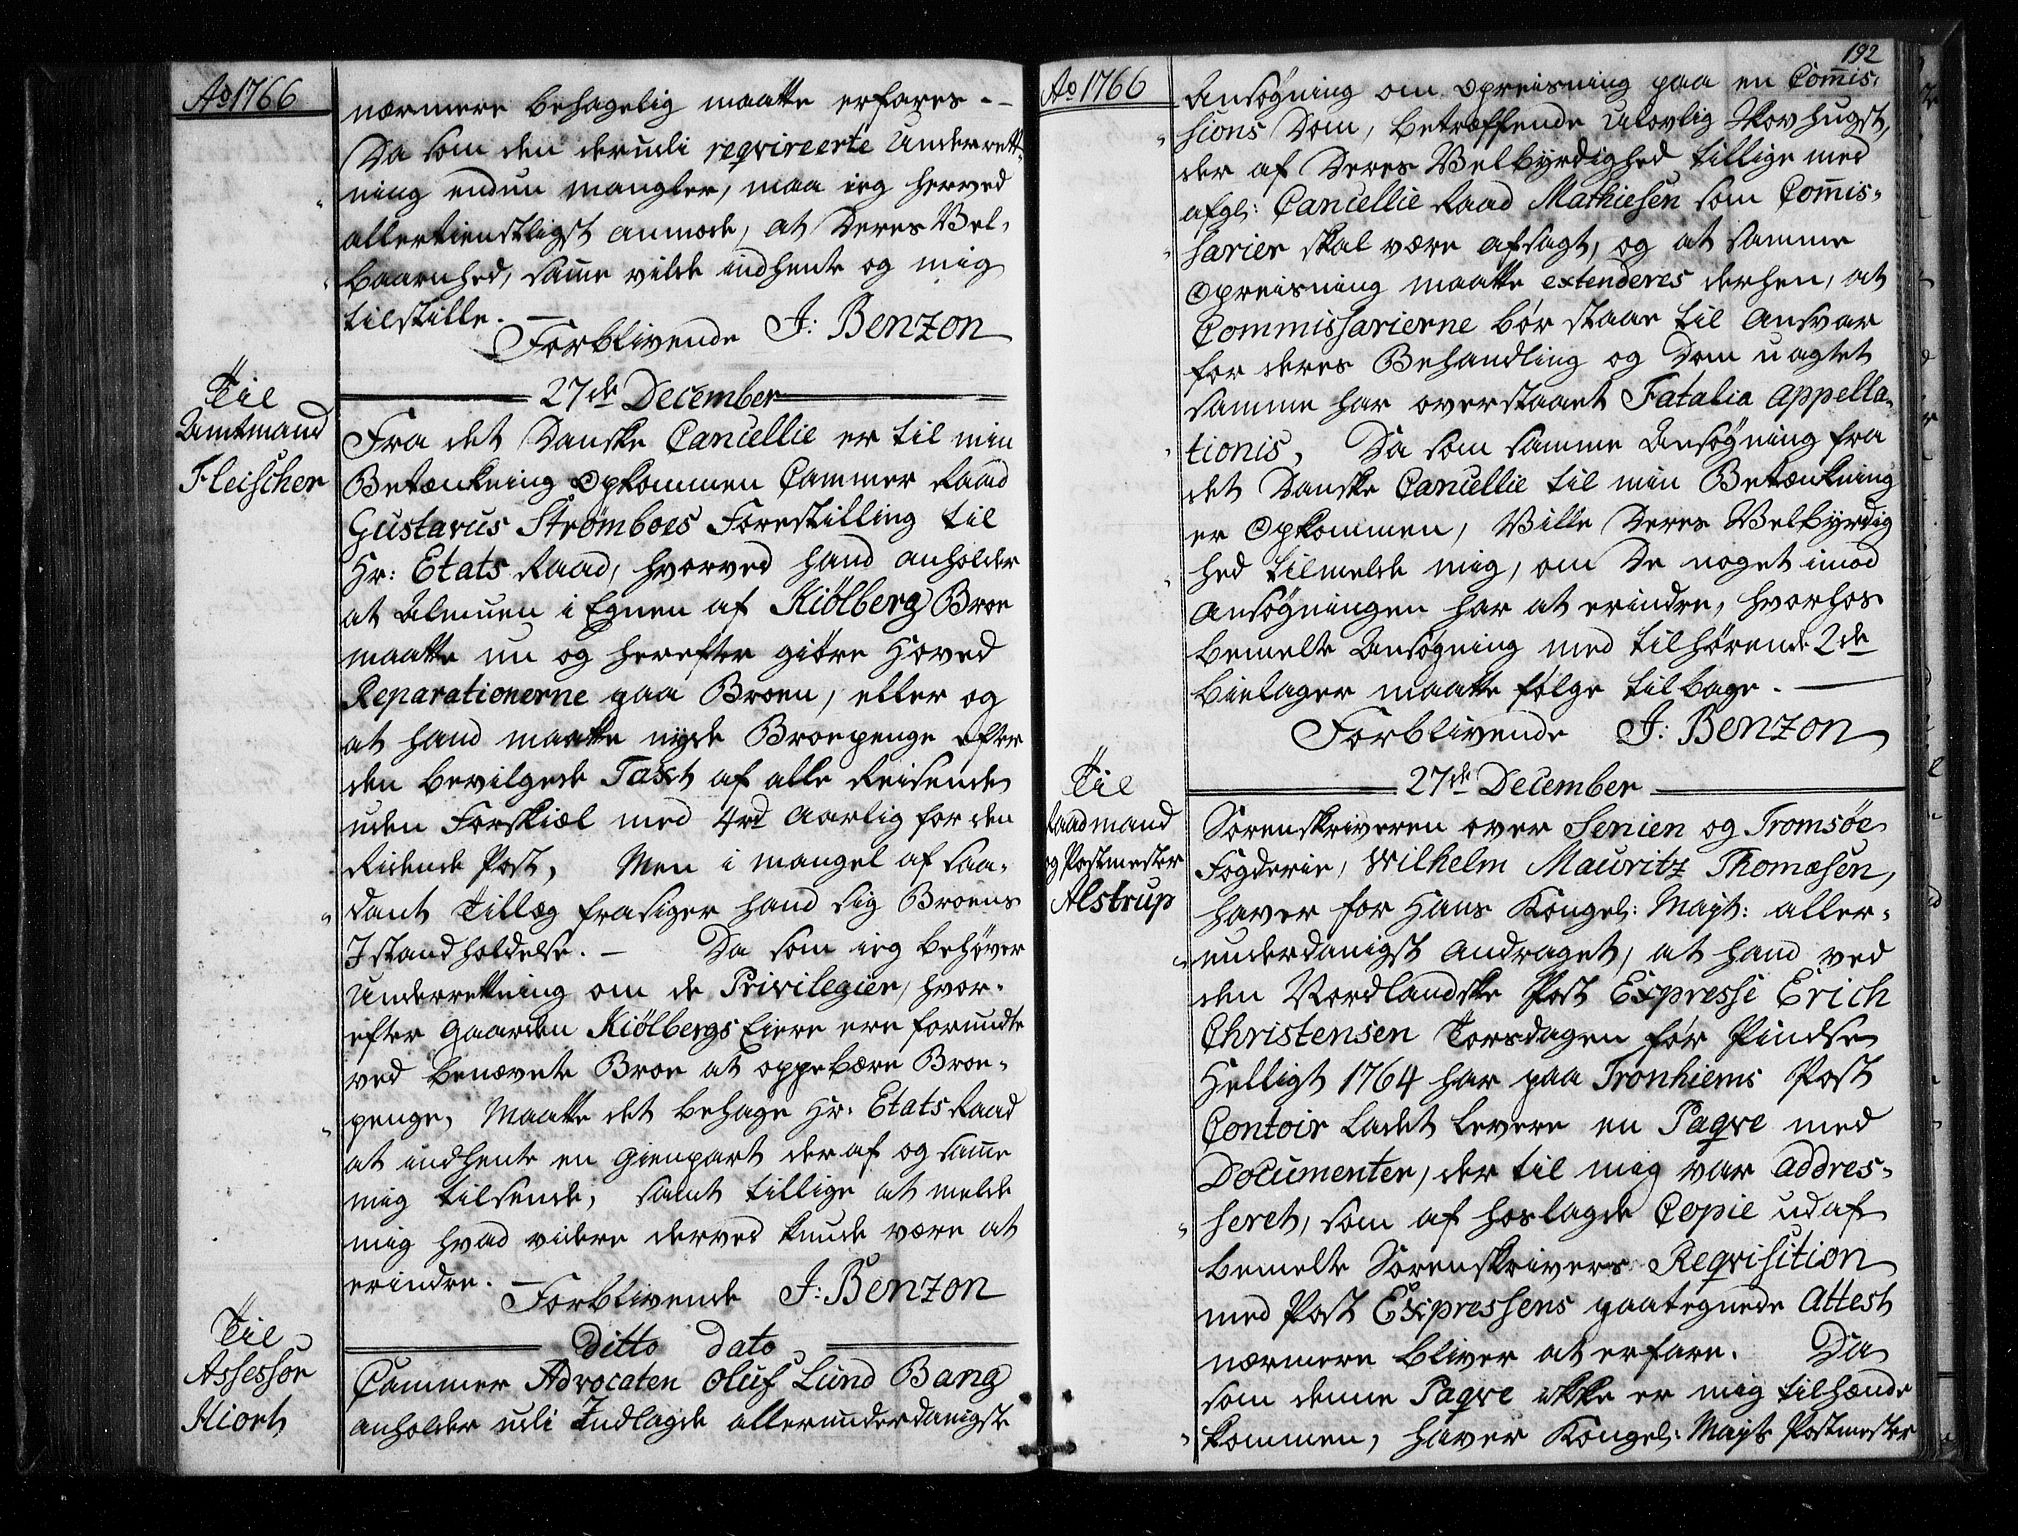 Ao 1766
nærmere behagelig maatte erfares. –
Da som den derudi reqvireerte Underrett-
ning endnu mangler, maa ieg herved
allertienstligst anmode, at Deres Vel-
baarenhed, samme vilde indhente og mig
tilstille. –
Forblivende J: Benzon
27de December
Til
Amtmand
Fleischer
Fra det Danske Cancellie er til min
Betænkning opkommen Cammer Raad
Gustavus Strømboes Forestilling til
Hr: Etats Raad, hvorved hand anholder
at Almuen i Egnen af Kiölberg Broe
maatte nu og herefter giöre Hoved
Reparationerne paa Broen, eller og
at hand maatte nyde Broepenge efter
den bevilgede Taxt af alle Reisende
uden Forskiæl med 4rd Aarlig for den
Ridende Post, Men i mangel af saa-
dant Tillæg frasiger hand sig Broens
Istandholdelse. – Da som ieg behøver
Underrettning om de Privilegier, hvor-
efter Gaarden Kiölbergs Eiere ere forundte
ved benævnte Broe at oppebære Broe-
penge, Maatte det behage Hr. Etats Raad
at indhente en Gienpart deraf og samme
mig tilsende, samt tillige at melde
mig hvad videre derved kunde være at
erindre. –
Forblivende J: Benzon
Ditto dato
Til
Assessor
Hiort
Cammer Advocaten Oluf Lund Bang
anholder udi Indlagde allerunderdanigste
192
Ao 1766
Ansøgning om opreisning paa en Commis-
sions Dom, betræffende ulovlig Skovhugst,
der af Deres Velbyrdighed tillige med
afgl: Cancellie Raad Mathiesen som Commis-
sarier skal være afsagt, og at samme
Opreisning maatte extenderes derhen, at
Commissarierne bör staae til Ansvar
for deres Behandling og Dom uagtet
samme har overstaaet Fatalia Appella-
tionis, Da som samme Ansøgning fra
det Danske Cancellie til min Betænkning
er opkommen, Ville Deres Velbyrdig
hed tilmelde mig, om De noget imod
Ansøgningen har at erindre, hvorhos
bemelte Ansøgning med tilhørende 2de
bielager maatte følge tilbage. –
Forblivende J: Benzon
27de December
Til
Raadmand
og Postmester
Alstrup
Sorenskriveren over Senien og Tromsøe
Fogderie, Wilhelm Mauritz Thomæsen,
haver for Hans Kongel: Mayt: aller-
underdanigst Andraget, at hand ved
den Nordlandske Post Expresse Erich
Christensen Torsdagen før Pindse
Helligt 1764 har paa Tronhiems Post
Contoir ladet levere en Paqve med
Documenter, der til mig var addres-
seret, som af hoslagde Copie udaf
bemelte Sorenskrivers Reqvisition
med Post Expressens paategnede Attest
nærmere bliver at erfare. Da
som denne Paqve ikke er mig tilhænde
kommen, haver Kongel: Mayts Postmester